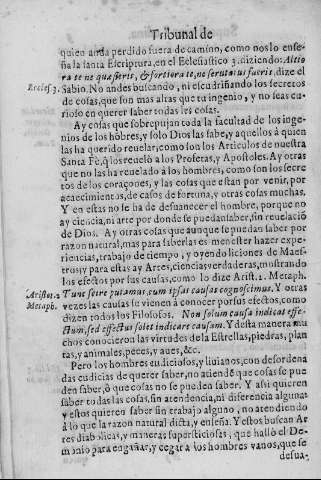 Tribunal de
quien anda perdido fuera de camino, como nos lo ense-
ña la santa Escriptura, en el Eclesiastico 3. diziendo: Altio
ra te ne quæsieris, & fortiora te, ne scrutatus fueris, dize el
Eccles. 3. Sabio. No andes buscando, ni escudriñando los secretos
de cosas, que son mas altas que tu ingenio, y no seas cu-
rioso en querer saber todas les cosas.
Ay cosas que sobrepujan toda la facultad de los inge-
nios de los hõbres, y solo Dios las sabe, y aquellos à quien
las ha querido reuelar, como son los Articulos de nuestra
Santa Fè, q̃ los reuelò a los Profetas, y Apostoles. Ay otras
que no las ha reuelado à los hombres, como son los secre-
tos de los coraçones, y las cosas que estan por venir, por
acaecimientos, de casos de fortuna, y otras cosas muchas.
Y en estas no se ha de desuanecer el hombre, porque no
ay ciencia, ni arte por donde se puedan saber, sin reuelaciõ
de Dios. Ay otras cosas que aunque se puedan saber por
razon natural, mas para saberlas es menester hazer expe-
riencias, trabajo de tiempo, y oyendo liciones de Maes-
tros; y para estas ay Artes, ciencias verdaderas, mostrando
los efectos por sus causas, como lo dize Arist. 2. Metaph.
Aristot. 2 Tunc scire putamus, cum ipsas causas cognoscimus. Y otras
Metaph. vezes las causas se vienen à conocer por sus efectos, como
dizen todos los Filosofos. Non solum causa indicat effe-
ctum, sed effectus solet indicare causam. Y desta manera mu
chos conocieron las virtudes de la Estrellas, piedras, plan
tas, y animales, peces, y aues, &c.
Pero los hombres cudiciosos, y liuianos, con desordena
das cudicias de querer saber, no atiendẽ que cosas se pue
den saber, ò que cosas no se pueden saber. Y assi quieren
saber todas las cosas, sin atendencia, ni diferencia algunas
y estos quieren saber sin trabajo alguno, no atendiendo
à lo que la razon natural dicta, y enseña. Y estos buscan Ar
tes diabolicas, y maneras supersticiosas, que hallò el De-
monio para engañar, y cegar à los hombres vanos, que se
desua-